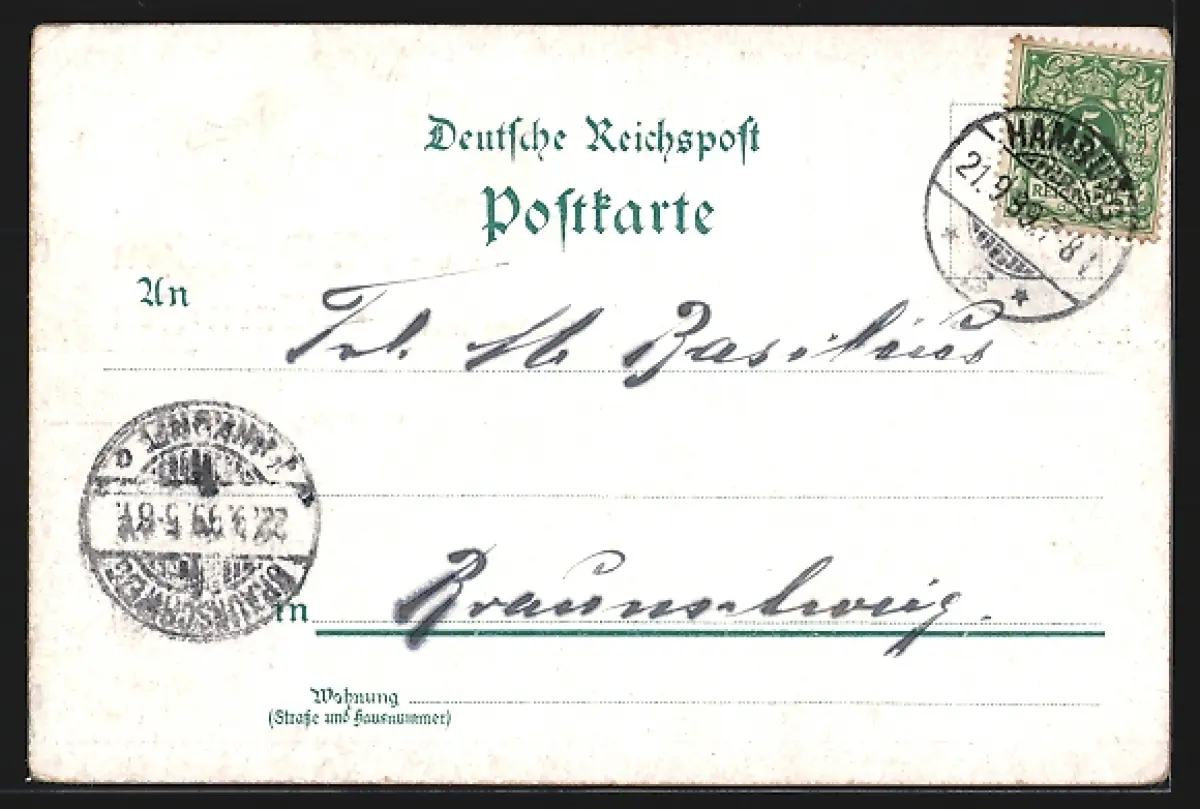 Deutsche Reichspost
Postkarte
5
HAMBU
21.9.99. 7-8
An
Frl. M Basilius
22.9.99. 5-6
BRAUNSCHWEIG
in Braunschweig.
Wohnung
(Straße und Hausnummer)